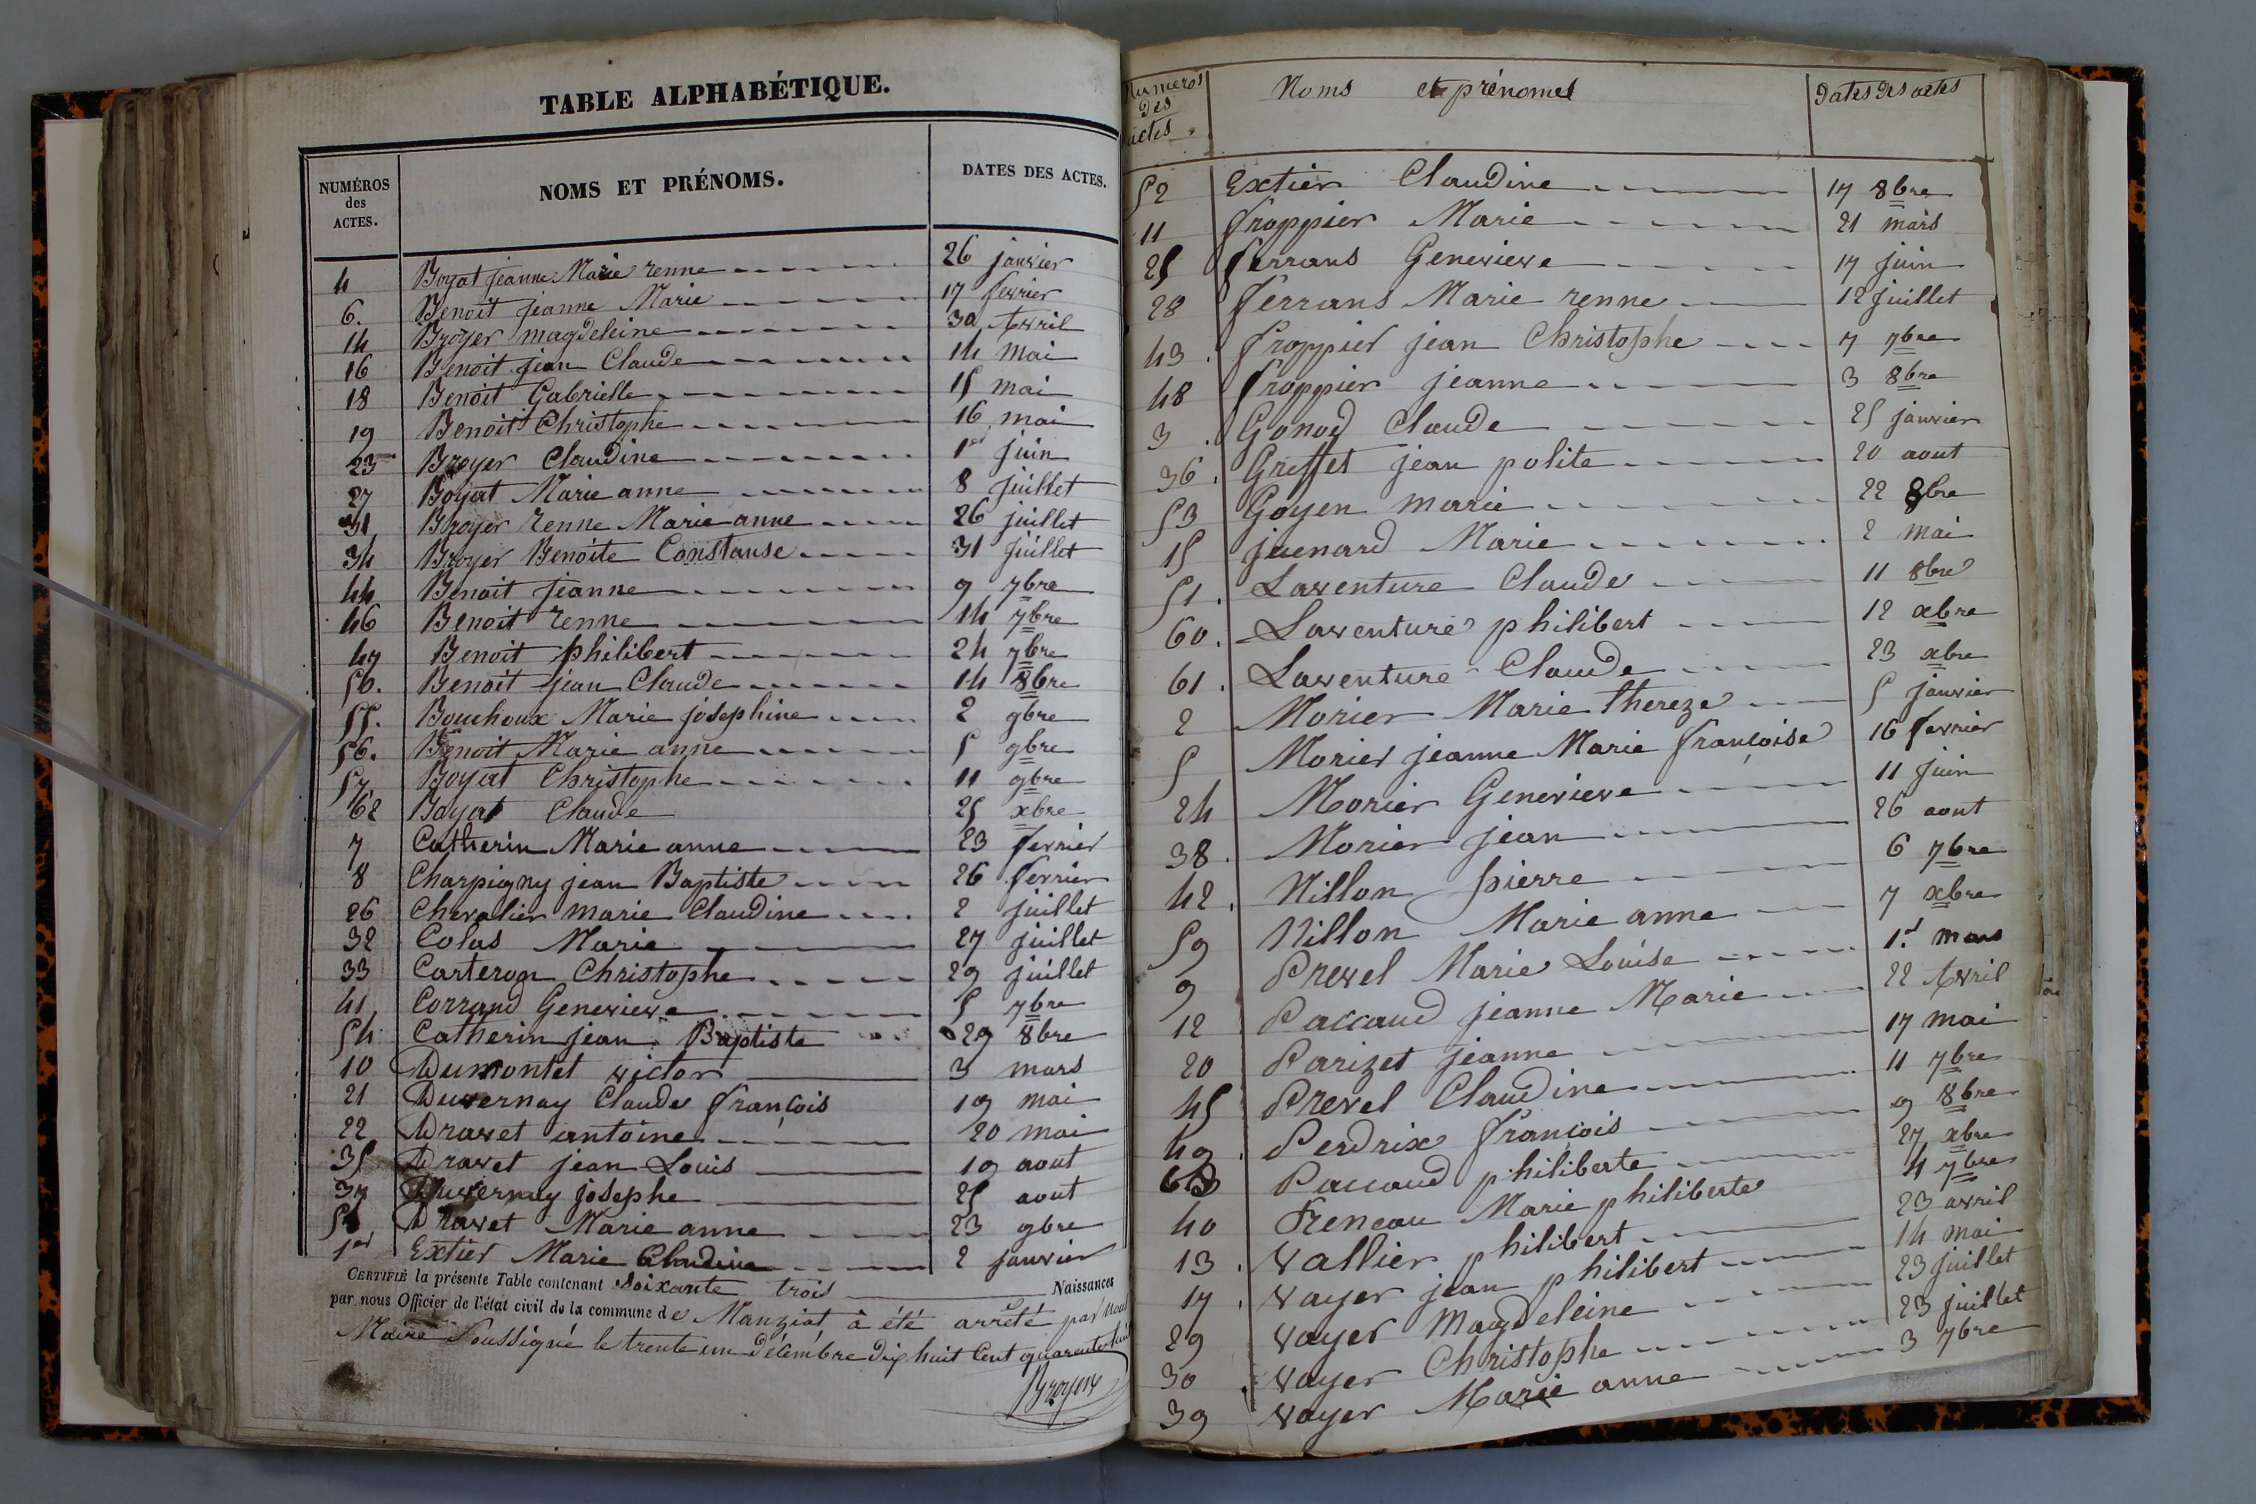 TABLE ALPHABÉTIQUE.
NUMÉROS des ACTES. NOMS ET PRÉNOMS. DATES DES ACTES.
4 Boyat jeanne Marie renne 26 janvier
6. Benoit jeanne Marie 17 fevrier
14 Broyer magdeleine 30 Avril
16 Benoit jean Claude 14 Mai
18 Benoit Gabrielle 15 mai
19 Benoit Christophe 16 mai
23 Broyer Claudine 1er juin
27 Boyat Marie anne 8 juillet
31 Broyer renne Marie anne 26 juillet
34 Broyer Benoite Constanse 31 juillet
44 Benoit jeanne 9 7bre
46 Benoit renne 14 7bre
47 Benoit philibert 24 7bre
50. Benoit jean Claude 14 8bre
55. Bouchoux Marie josephine 2 9bre
56. Benoit Marie anne 5 9bre
57 Boyat Christophe 11 9bre
62 Boyat Claude 25 xbre
7 Catherin Marie anne 23 fevrier
8 Charpigny jean Baptiste 26 fevrier
26 Chevalier marie Claudine 2 juillet
32 Colas Marie 27 juillet
33 Carteron Christophe 29 juillet
41 Corrand Genevieve 5 7bre
54 Catherin jean Baptiste 29 8bre
10 Dumontet victor 3 mars
21 Duvernay Claude françois 19 mai
22 Dravet antoine 20 mai
35 Dravet jean Louis 19 aout
37 Duvernay josephe 25 aout
Dravet Marie anne 23 9bre
1er Extier Marie Claudine 2 janvier
CERTIFIÉ la présente Table contenant Soixante trois Naissances
par nous Officier de l'état civil de la commune de Manziat à été arrêté par Nous
Maire Soussigné le trente un décembre dix huit Cent quarente huit
Broyer
Numeros des actes. Noms et prénoms Dates des actes
52 Extier Claudine 17 8bre
11 froppier Marie 21 mars
25 ferrans Genevieve 17 juin
28 ferrans Marie renne 12 juillet
43. froppier jean Christophe 7 7bre
48 froppier jeanne 3 8bre
3. Gonod Claude 25 janvier
36. Greffet jean polite 20 aout
53 Goyen marie 22 8bre
15 juenard Marie 2 mai
51. Laventure Claude 11 8bre
60. Laventure philibert 12 xbre
61. Laventure Claude 23 xbre
2 Morier Marie thereze 5 janvier
5 Morier jeanne Marie françoise 16 fevrier
24 Morier Genevieve 11 juin
38. Morier jean 26 aout
42. Nillon pierre 6 7bre
59 Nillon Marie anne 7 xbre
9 Prevel Marie Louise 1er mars
12 Paccaud jeanne Marie 22 Avril
20 Parizet jeanne 17 mai
45 Prevel Claudine 11 7bre
49. Perdrix françois 9 8bre
63 Paccaud philiberte 27 xbre
40 Freneau Marie philiberte 4 7bre
13. vallier philibert 23 avril
17. vayer jean philibert 14 mai
29 vayer Magdeleine 23 juillet
30. vayer Christophe 23 juillet
39 vayer Marie anne 3 7bre